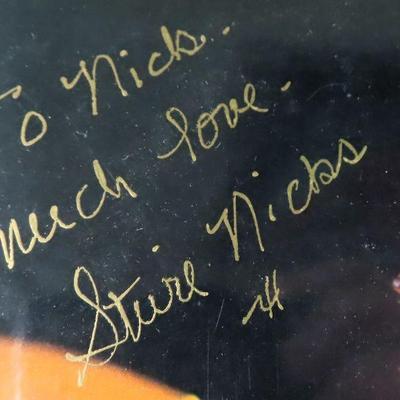 To Nick.
much love.
Stevie Nicks